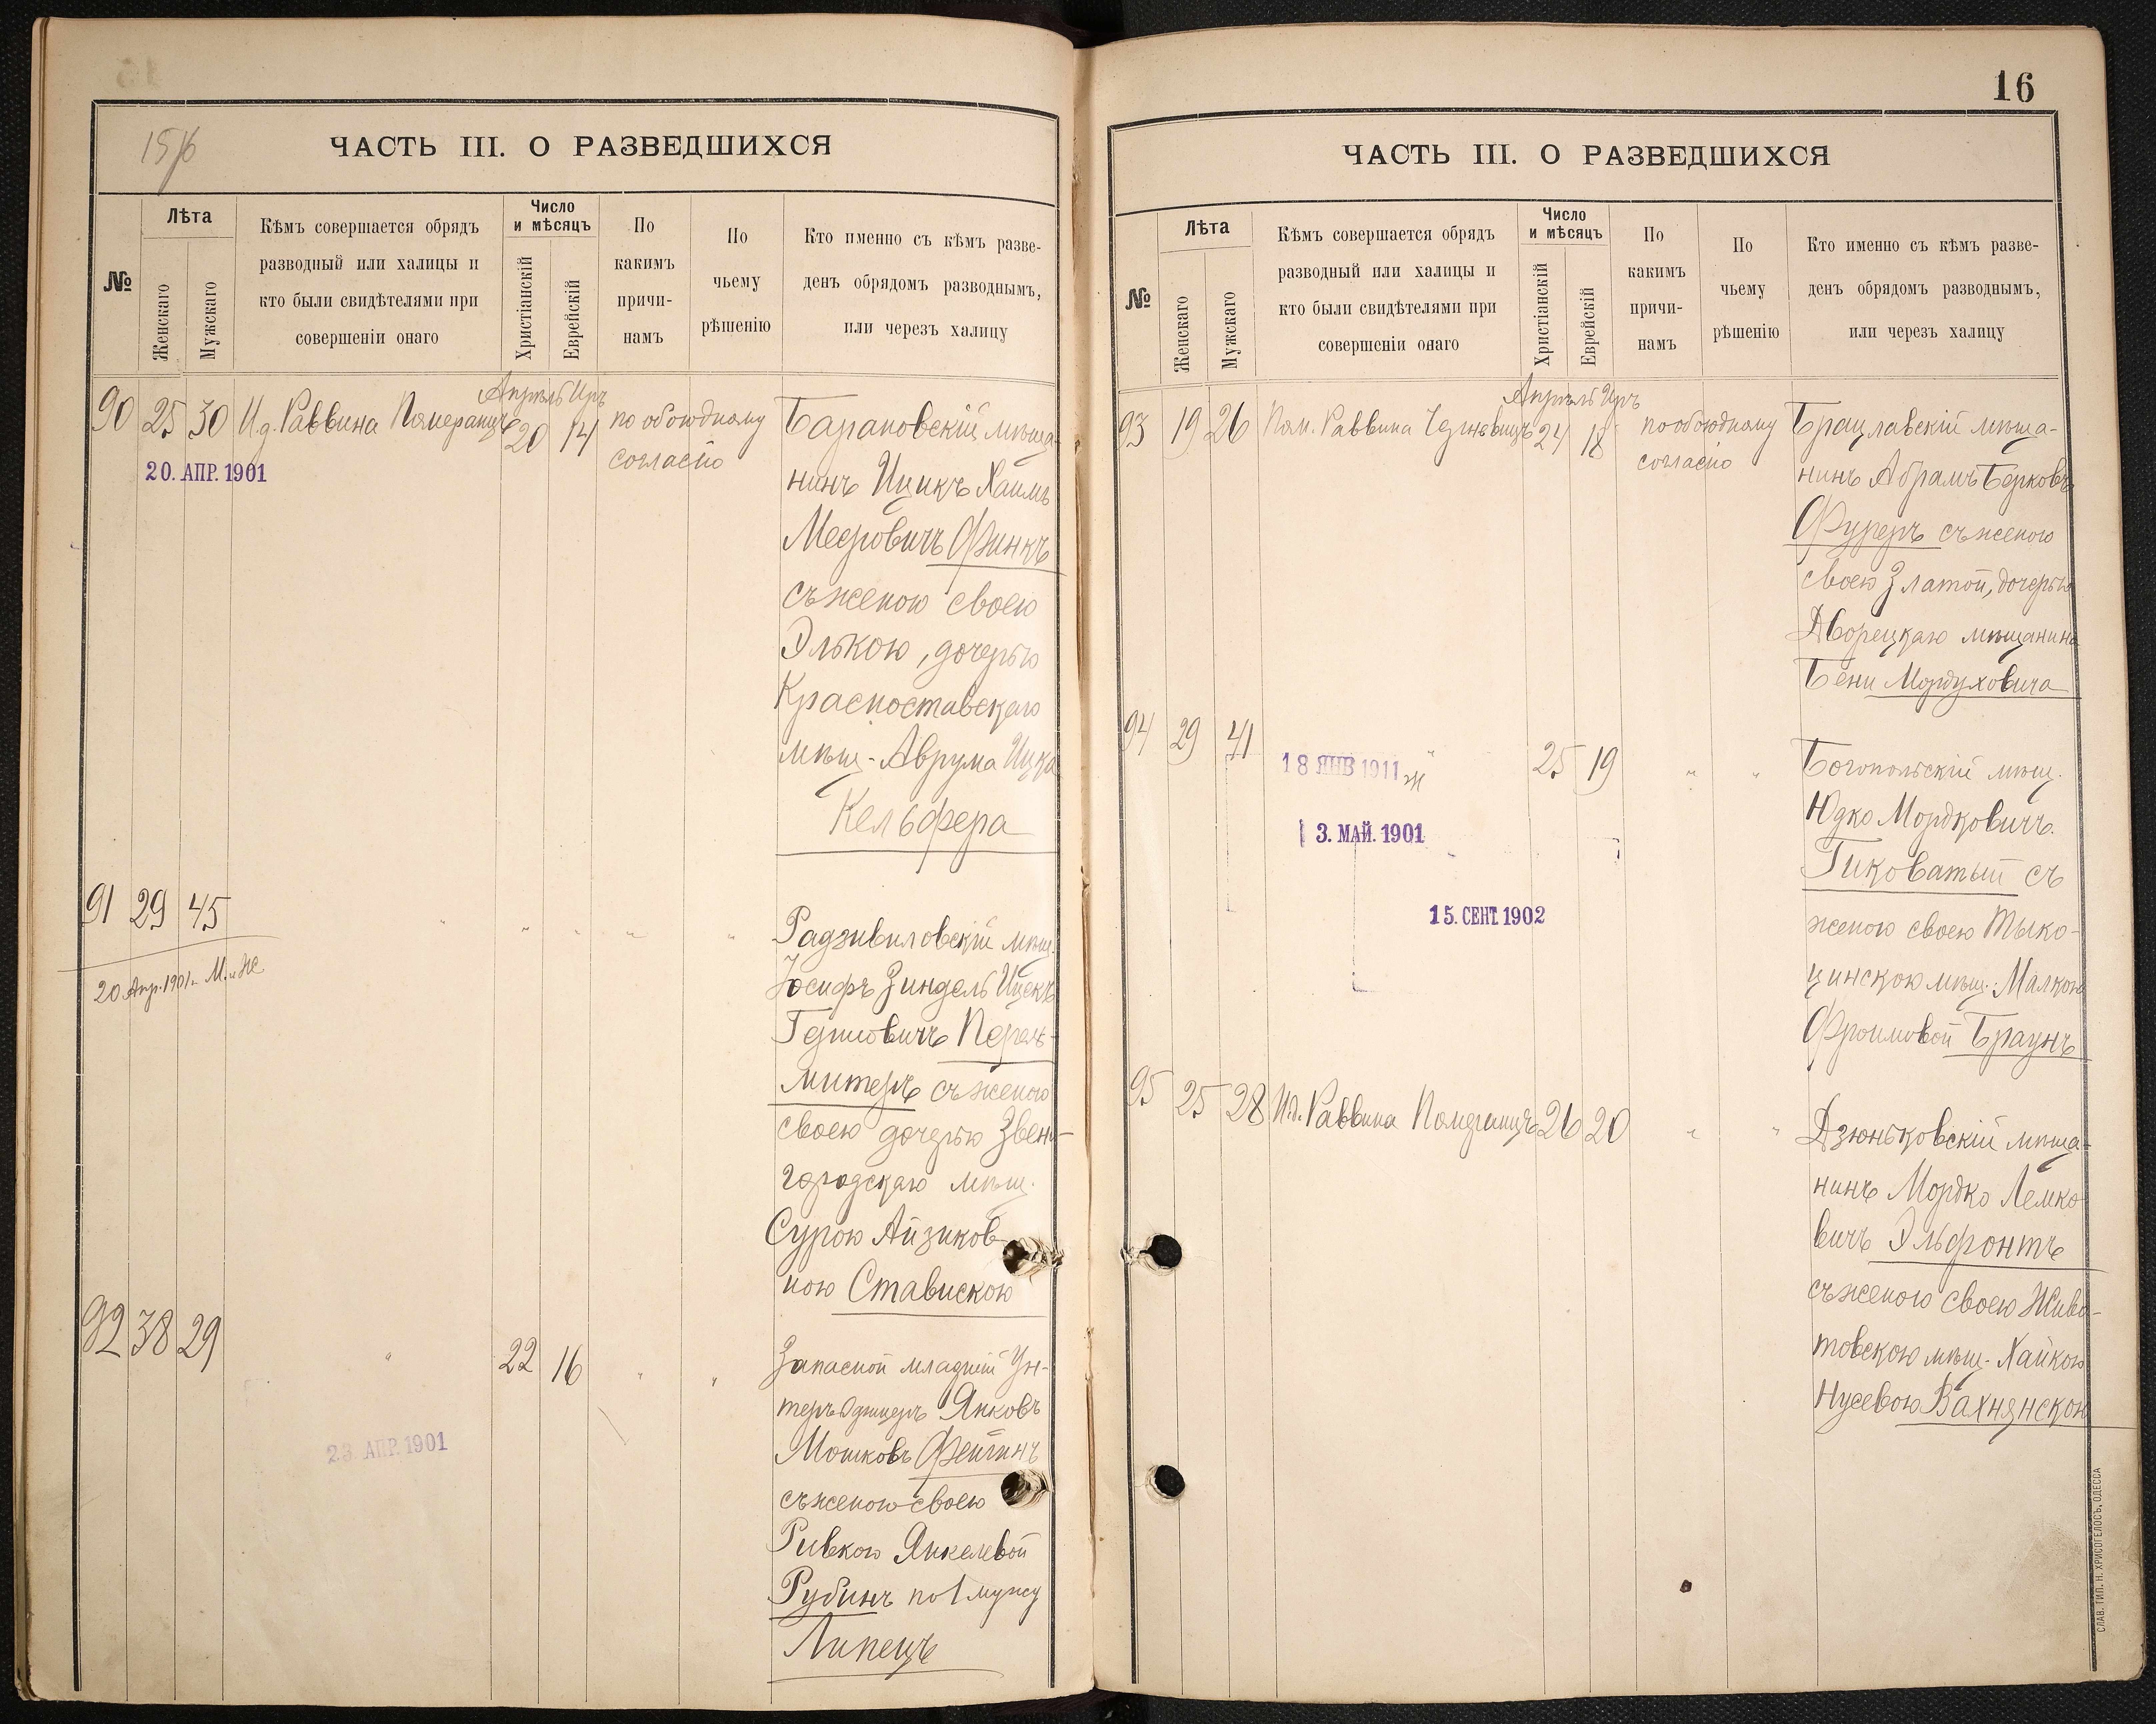 15/16
ЧАСТЬ III. О РАЗВЕДШИХСЯ
№
Лѣта
Женскаго
Мужскаго
Кѣмъ совершается обрядъ
разводный или халицы и
кто были свидѣтелями при
совершеніи онаго
Число
и мѣсяцъ
Христіанскій
Еврейскій
По
какимъ
причи-
намъ
По
чьему
рѣшенію
Кто именно съ кѣмъ разве-
денъ обрядомъ разводнымъ,
или черезъ халицу
Апрѣль Иръ
90 25 30 И.д. Раввина Померанцъ 20 14 по обоюдному
согласію
20. АПР. 1901
Барановскій мѣща-
нинъ Ицикъ Хаимъ
Мееровичъ Финкъ
съ женою своею
Элькою, дочерью
Красноставскаго
мѣщ. Аврума Ицка
Кельфера
91 29 45 " " " " "
20 Апр. 1901 г. М. и Ж
Радзивиловскій мѣщ.
Іосифъ Зиндель Ицекъ
Гершовичъ Перель-
митеръ съ женою
своею дочерью Звени-
городскаго мѣщ.
Сурою Айзиков-
ною Ставискою
92 38 29 " 22 16 " "
23. АПР. 1901
Запасной младшій Ун-
теръ Офицеръ Янковъ
Мошковъ Фейгинъ
съ женою своею
Ривкою Янкелевой
Рубинъ по 1 мужу
Липецъ
16
ЧАСТЬ III. О РАЗВЕДШИХСЯ
№
Лѣта
Женскаго
Мужскаго
Кѣмъ совершается обрядъ
разводный или халицы и
кто были свидѣтелями при
совершеніи онаго
Число
и мѣсяцъ
Христіанскій
Еврейскій
По
какимъ
причи-
намъ
По
чьему
рѣшенію
Кто именно съ кѣмъ разве-
денъ обрядомъ разводнымъ,
или черезъ халицу
Апрѣль Иръ
93 19 26 Пом. Раввина 24 18 по обоюдному
согласію
Брацлавскій мѣща-
нинъ Абрамъ Берковъ
Фуреръ съ женою
своею Златой, дочерью
Дворецкаго мѣщанина
Бени Мордуховича
94 29 41 " 25 19 " "
18 ЯНВ 1911 Ж
3. МАЙ. 1901
15. СЕНТ. 1902
Богопольскій мѣщ.
Юдко Мордковичъ
Гиковатый съ
женою своею Тыко-
цинскою мѣщ. Малкою
Фроимовой Браунъ
95 25 28 И.д. Раввина Померанцъ 26 20 " "
Дзюньковскій мѣща-
нинъ Мордко Лемко-
вичъ Эльфонтъ
съ женою своею Живо-
товскою мѣщ. Хайкою
Нусевою Вахнянскою
СЛАВ. ТИП. Н. ХРИСОГЕЛОСЪ, ОДЕССА